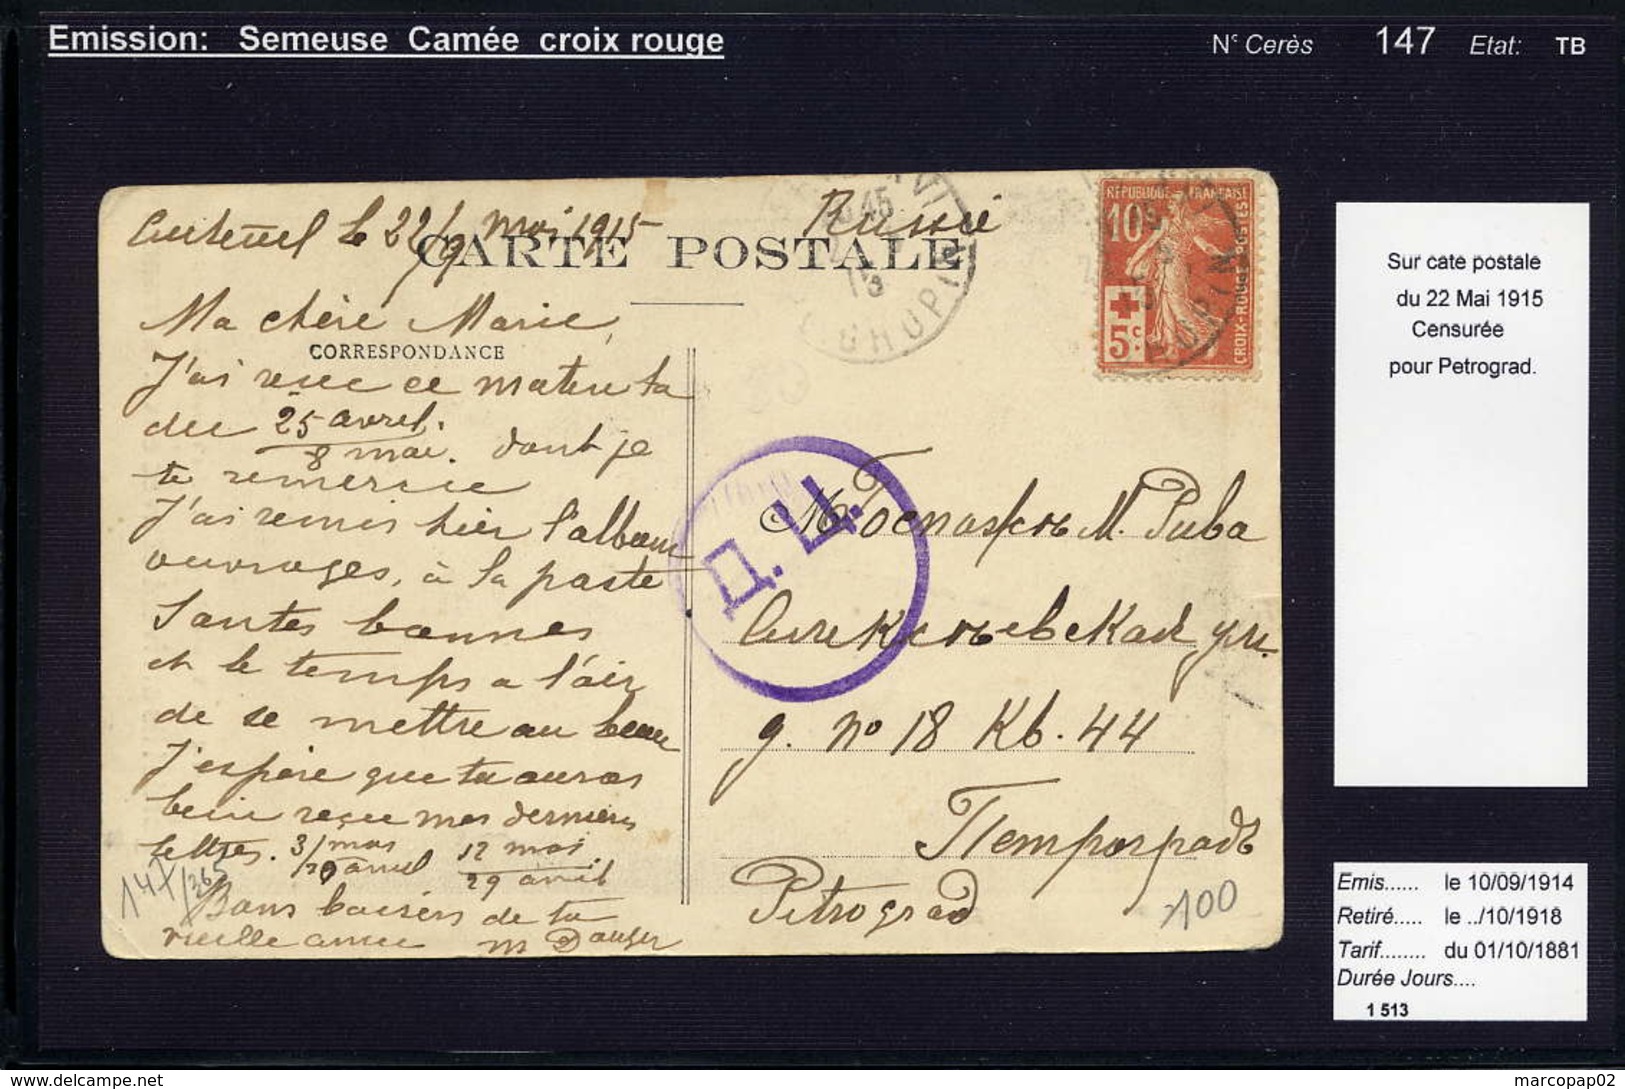 Emission: Semeuse Camée croix rouge
N° Cerès 147 Etat: TB
Auteuil le 22/9 mai 1915
Russie
CARTE POSTALE
Ma chère Marie,
CORRESPONDANCE
J'ai reçu ce matin ta
du 25 avril.
8 mai. dont je
te remercie
J'ai remis hier l'album
ouvrages, à la poste
Santés bonnes
et le temps a l'air
de se mettre au beau
J'espère que tu auras
bien reçu mes dernières
lettres. 3/ mai 12 mai
20 avril 29 avril
Bons baisers de ta
vieille amie M Dauger
147/365
RÉPUBLIQUE FRANÇAISE
POSTES
10c
5c
CROIX-ROUGE
45
15
CHOPIN
CHOPIN
Д. Ц.
M. Рива
г. no 18 Кв. 44
Петроградъ
Petrograd
100
Sur cate postale
du 22 Mai 1915
Censurée
pour Petrograd.
Emis...... le 10/09/1914
Retiré..... le ../10/1918
Tarif........ du 01/10/1881
Durée Jours....
1 513
marcopap02